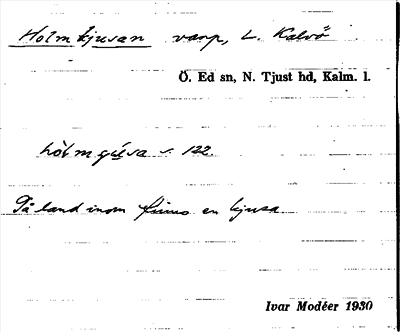 Holmkjusan varp, L. Kalvö
Ö. Ed sn, N. Tjust hd, Kalm. l.
hòlmgu̇sa s. 122.
På land inom finns en kjusa
Ivar Modéer 1930